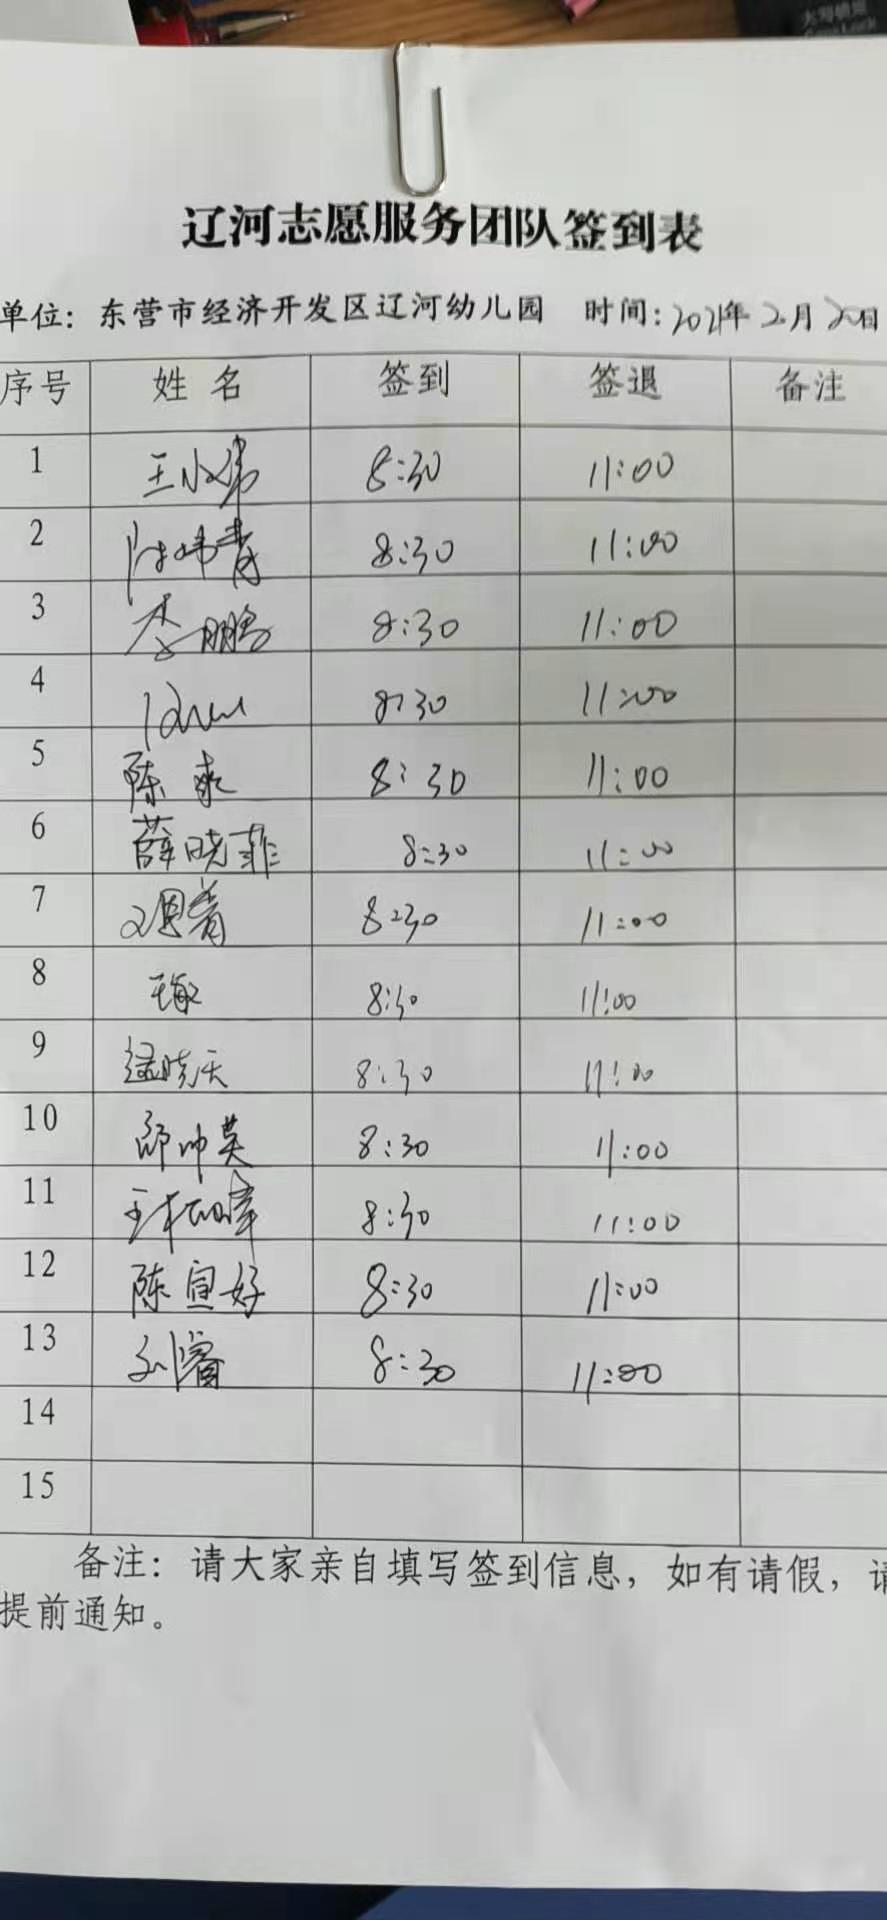 辽河志愿服务团队签到表
单位：东营市经济开发区辽河幼儿园 时间：2021年2月20日
序号 姓名 签到 签退 备注
1 王小伟 8:30 11:00
2 8:30 11:00
3 李鹏 8:30 11:00
4 8:30 11:00
5 陈 8:30 11:00
6 薛晓菲 8:30 11:00
7 8:30 11:00
8 8:30 11:00
9 孟晓天 8:30 11:00
10 邱帅英 8:30 11:00
11 8:30 11:00
12 陈宣好 8:30 11:00
13 8:30 11:00
14
15
备注：请大家亲自填写签到信息，如有请假，请
提前通知。